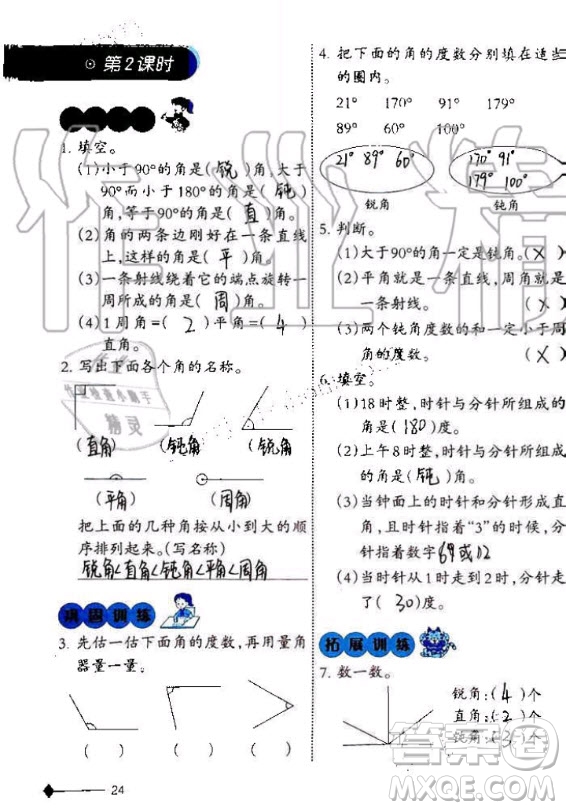 第2课时
1. 填空。
(1)小于90°的角是(锐)角,大于
90°而小于180°的角是(钝)
角,等于90°的角是(直)角。
(2)角的两条边刚好在一条直线
上,这样的角是(平)角。
(3)一条射线绕着它的端点旋转一
周所成的角是(周)角。
(4)1周角=(2)平角=(4)
直角。
2. 写出下面各个角的名称。
(直角) (钝角) (锐角)
(平角) (周角)
把上面的几种角按从小到大的顺
序排列起来。(写名称)
锐角<直角<钝角<平角<周角
巩固训练
3. 先估一估下面角的度数,再用量角
器量一量。
( ) ( ) ( )
24
4. 把下面的角的度数分别填在适当
的圈内。
21° 170° 91° 179°
89° 60° 100°
21° 89° 60°
170° 91°
179° 100°
锐角 钝角
5. 判断。
(1)大于90°的角一定是钝角。(X)
(2)平角就是一条直线,周角就是
一条射线。 (X)
(3)两个钝角度数的和一定小于周
角的度数。 (X)
6. 填空。
(1)18时整,时针与分针所组成的
角是(180)度。
(2)上午8时整,时针与分针所组成
的角是(钝)角。
(3)当钟面上的时针和分针成直角,
且时针指着“3”的时候,分
针指着数字
(4)当时针从1时走到2时,分针转
了(30)度。
拓展训练
7. 数一数。
锐角:(4)个
直角:(2)个
钝角:( )个
作业精灵
答案圈
MXQE.COM